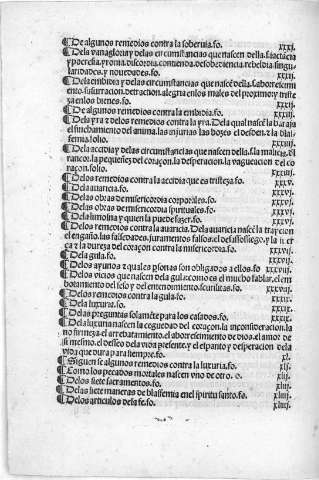 ¶De algunos remedios contra la soberuia.fo. xxxj.
¶Dela vanagloria y delas circunstancias que nascen della.s.iactãcia
ypocresia.yronia.discordia.contienda.desobediencia.rebeldia.singu
laridades.y nouedades.fo. xxxij.
¶Dela embidia y delas circunstancias que nascẽ della.s.aborrescimi
ento.susurracion.detraction.alegria enlos males del proximo:y triste
za enlos bienes.fo. xxxij.
¶De algunos remedios contra la embidia.fo. xxxiij.
¶Dela yra z delos remedios contra la yra. Dela qual nascẽ la
el finchamiento del anima.las injurias las bozes el desden.z la blas
femia.folio. xxxiiij.
¶Dela accidia y delas circunstancias que nascen della.s.la malicia.el
rancor.la pequeñez del coraçon.la desperacion.la vagueacion del co
raçon.folio. xxxiiij.
¶Delos remedios contra la accidia que es tristeza.fo. xxxv.
¶Dela auaricia.fo. xxxv.
¶Delas obras de misericordia corporales.fo. xxxvj.
¶Delas obras de misericordia spirituales.fo. xxxvj.
¶Dela limosna y quien la puede fazer.fo. xxxvj.
¶Delos remedios contra la auaricia. Dela auaricia nascẽ la traycion
el engaño.las falsedades.juramentos falsos.el desassossiego.y la
ça z la dureza del coraçon contra la misericordia.fo. xxxvij.
¶Dela gula.fo. xxxvij.
¶Delos ayunos z quales personas son obligados a ellos.fo xxxviij.
¶Delos vicios que nascen dela gula:como es el mucho fablar.el em
botamiento del seso y del entendimiento.scurrilitas.fo. xxxviij.
¶Delos remedios contra la gula.fo. xxxix.
¶Dela luxuria.fo. xxxix.
¶Delas preguntas solamẽte para los casados.fo. xxxix.
¶Dela luxuria nascen la ceguedad del coraçon.la inconsideracion.la
no firmeza.el arrebatamiento.el aborrescimiento de dios.el amor de
si mesmo.el desseo dela vida presente.y el espanto y desperacion dela
vida que dura para siempre.fo. xl.
¶Siguense algunos remedios contra la luxuria.fo. xlj.
¶Como los pecados mortales nascen vno de otro. xlij.
¶Delos siete sacramentos.fo. xlij.
¶Delas siete maneras de blasfemia enel spiritu santo.fo. xliij.
¶Delos articulos dela fe.fo. xliij.